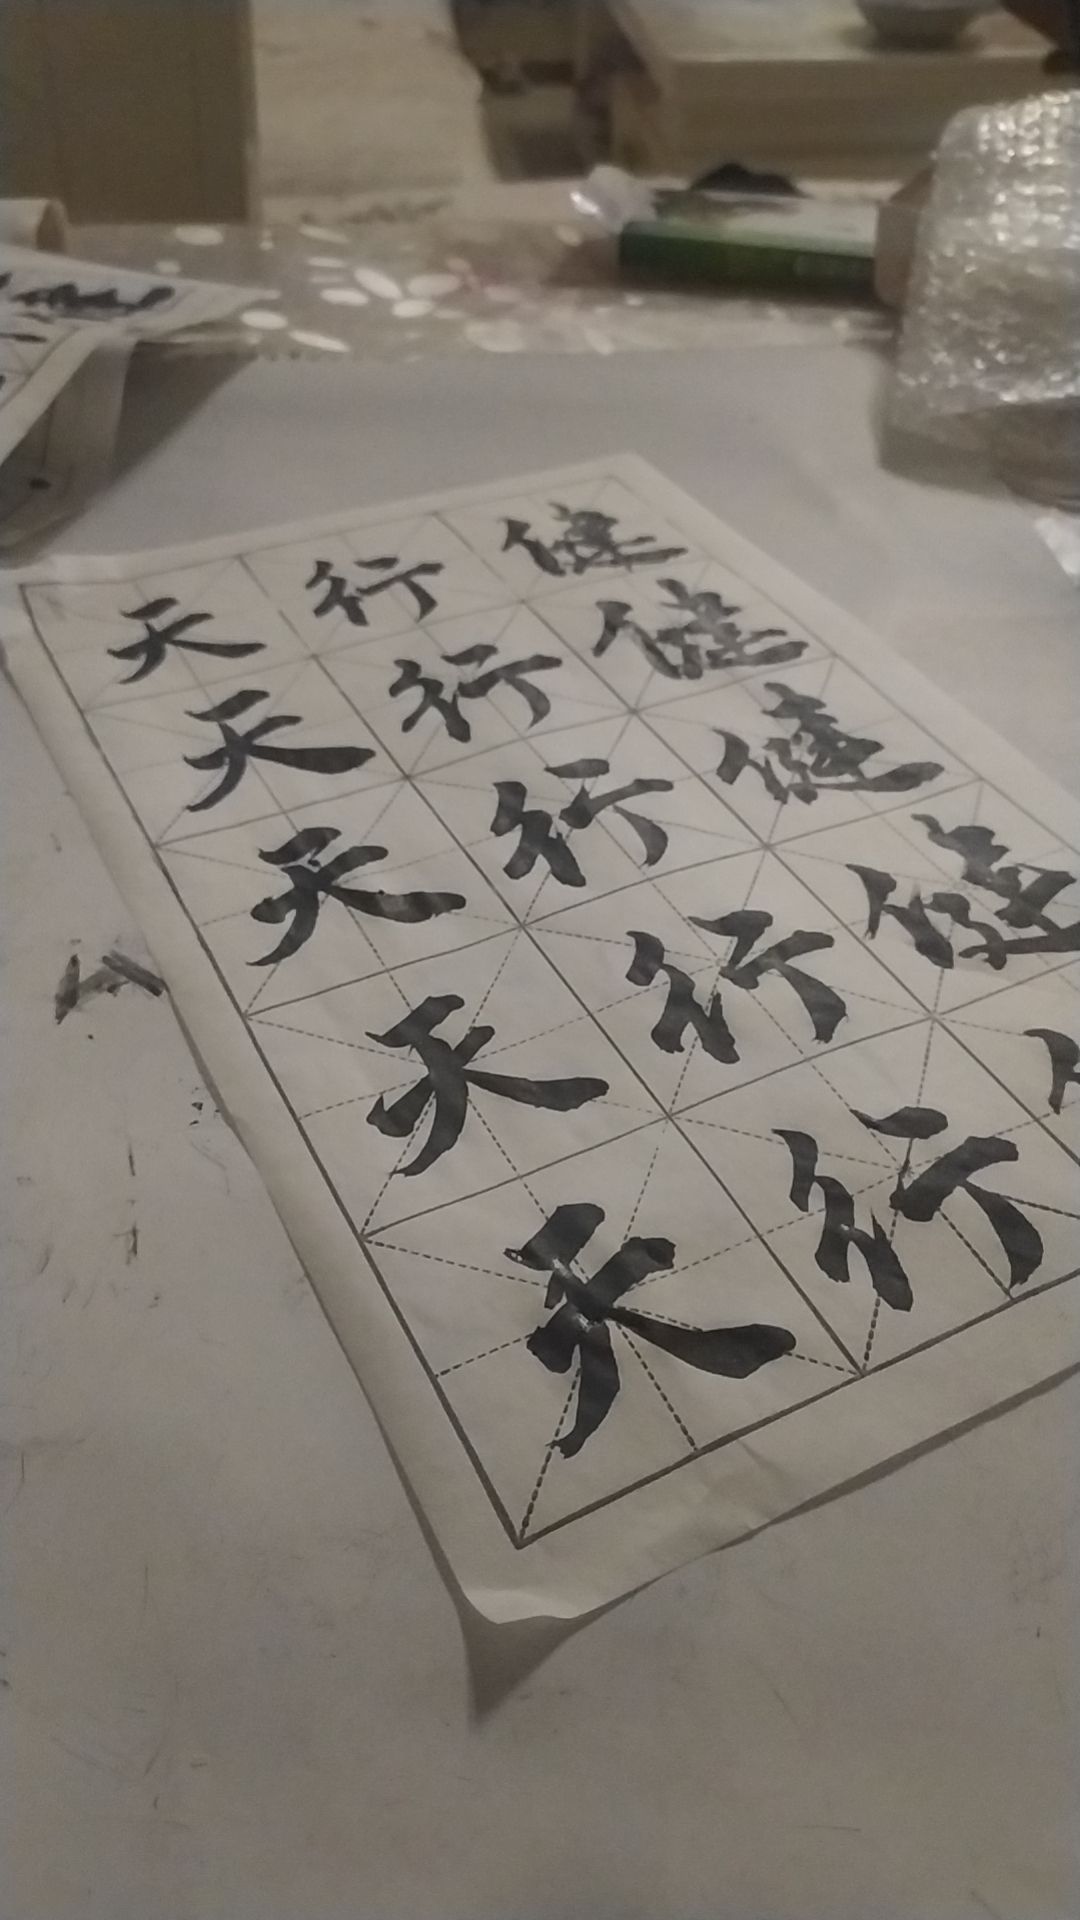 天行健
天行健
天行健
天行健
天行